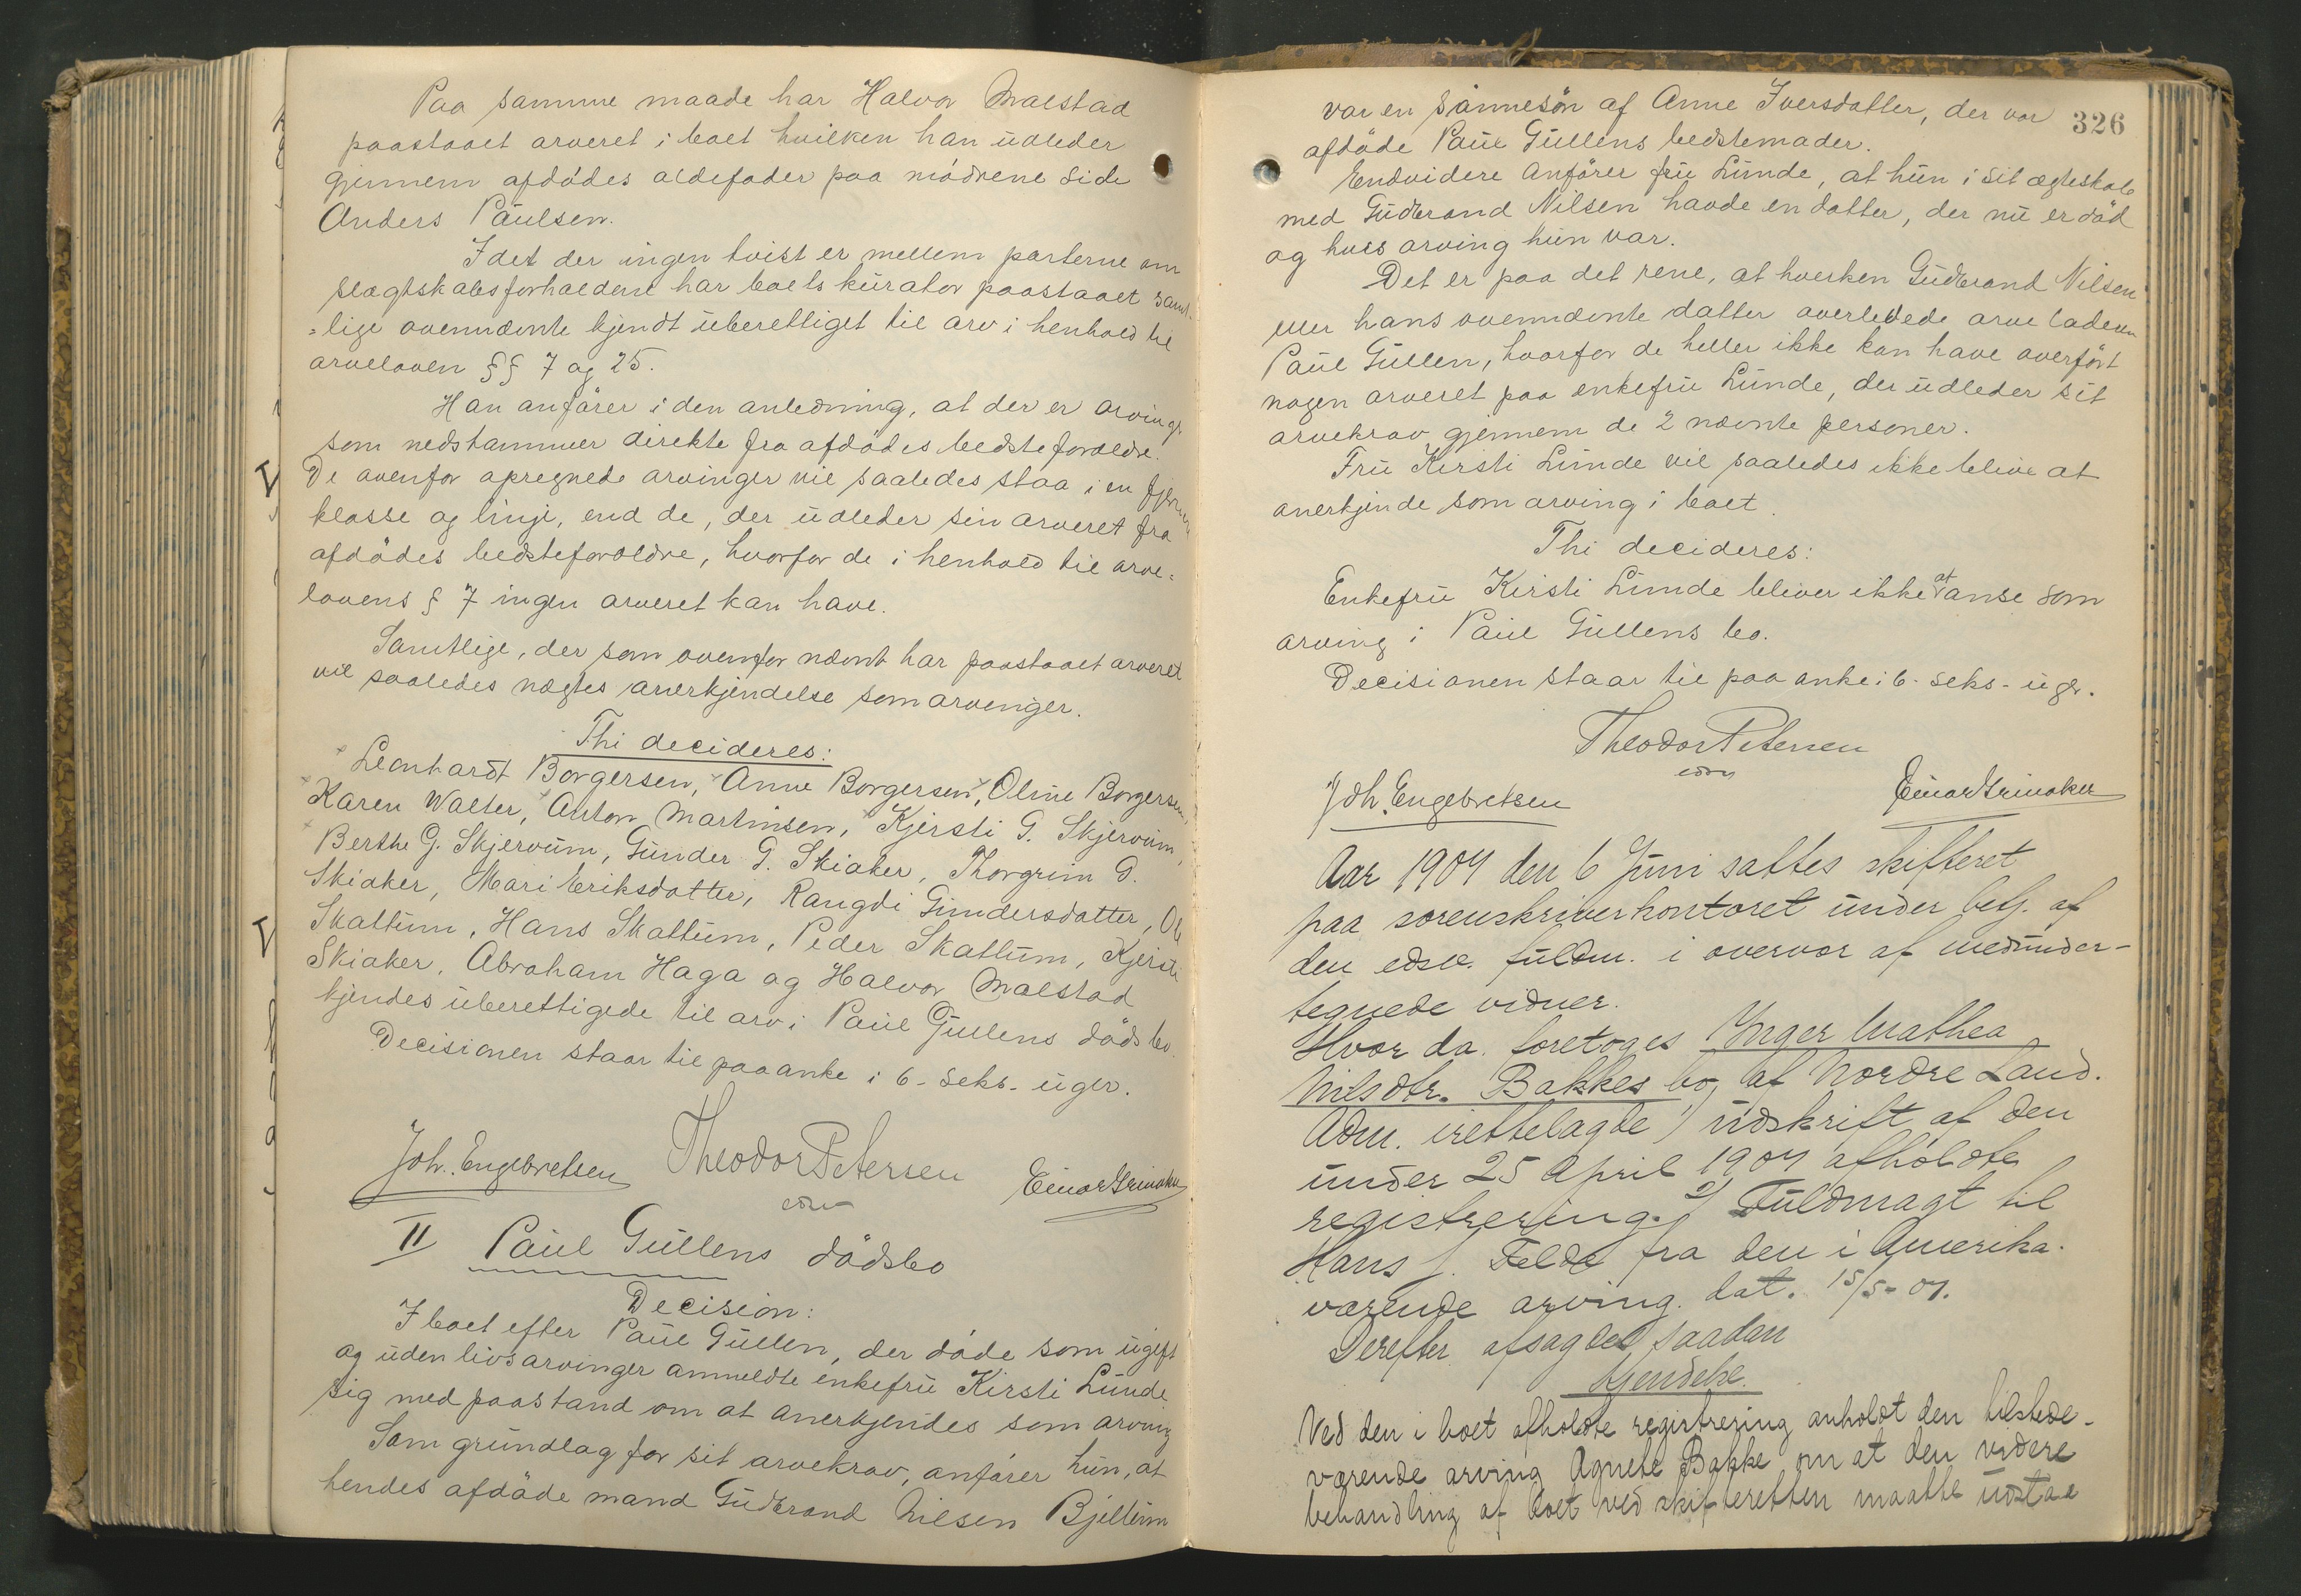 Paa samme maade har Halvor Malstad
paastaaet arveret i boet hvilken han udleder
gjennem afdødes oldefader paa mødrene side
Anders Paulsen.
Idet der ingen tvist er mellem parterne om
slægtskabsforholdene har boets kurator paastaaet samt-
=lige ovennævnte kjendt uberettiget til arv i henhold til
arveloven §§ 7 og 25.
Han anfører i den anledning, at der er arvinger
som nedstammer direkte fra afdødes bedsteforældre.
De ovenfor opregnede arvinger vil saaledes staa i en fjernere
klasse og linje, end de, der udleder sin arveret fra
afdødes bedsteforældre, hvorfor de i henhold til arve=
lovens § 7 ingen arveret kan have.
Samtlige, der som ovenfor nævnt har paastaaet arveret
vil saaledes nægtes anerkjendelse som arvinger.
Thi decideres:
Leonhardt Borgersen, Anne Borgersen, Oline Borgersen,
Karen Walter, Anton Martinsen, Kjersti G. Skjervum,
Berthe G. Skjervum, Gunder G. Skiaker, Thorgrim G.
Skiaker, Mari Eriksdatter, Rangdi Gundersdatter, Ole
Skattum, Hans Skattum, Peder Skattum, Kjersti
Skiaker, Abraham Haga og Halvor Malstad
kjendes uberettigede til arv i Paul Gullens dødsbo.
Decisionen staar til paaanke i 6- seks- uger.
Joh. Engebretsen Theodor Petersen Einar Grinaker
edsv
II Paul Gullens dødsbo
Decision:
I boet efter Paul Gullen, der døde som ugift
og uden livsarvinger anmeldte enkefru Kirsti Lunde
sig med paastand om at anerkjendes som arving
Som grundlag for sit arvekrav, anfører hun, at
hendes afdøde mand Gudbrand Nilsen Bjellum
326
var en sønnesøn af Anne Iversdatter, der var
afdøde Paul Gullens bedstemoder.
Endvidere anfører fru Lunde, at hun i sit ægteskab
med Gudbrand Nilsen havde en datter, der nu er død
og hvis arving hun var.
Det er paa det rene, at hverken Gudbrand Nilsen
eller hans ovennævnte datter overlevede arveladeren
Paul Gullen, hvorfor de heller ikke kan have overført
nogen arveret paa enkefru Lunde, der udleder sit
arvekrav gjennem de 2 nævnte personer.
Fru Kersti Lunde vil saaledes ikke blive at
anerkjende som arving i boet.
Thi decideres:
Enkefru Kirsti Lunde bliver ikke at anse som
arving i Paul Gullens bo.
Decisionen staar til paaanke i 6- seks- uger.
Theodor Petersen
edsv
Joh. Engebretsen Einar Grinaker
Aar 1907 den 6 Juni sattes skifteret
paa sorenskriverkontoret under betj. af
den edsv. fuldm. i overvær af medunder-
tegnede vidner.
Hvor da foretoges Inger Mathea
Nilsdtr. Bakkes bo, af Nordre Land.
Adm. irettelagde 1) udskrift af den
under 25 April 1907 afholdte
registrering. 2) Fuldmagt til
Hans J. Felde fra den i Amerika
værende arving. dat. 15/5-07.
Derefter afsagdes saadan
kjendelse.
Ved den i boet afholdte registrering anholdt den tilstede-
værende arving Agnete Bakke om at den videre
behandling af boet ved skifteretten maatte udstaa